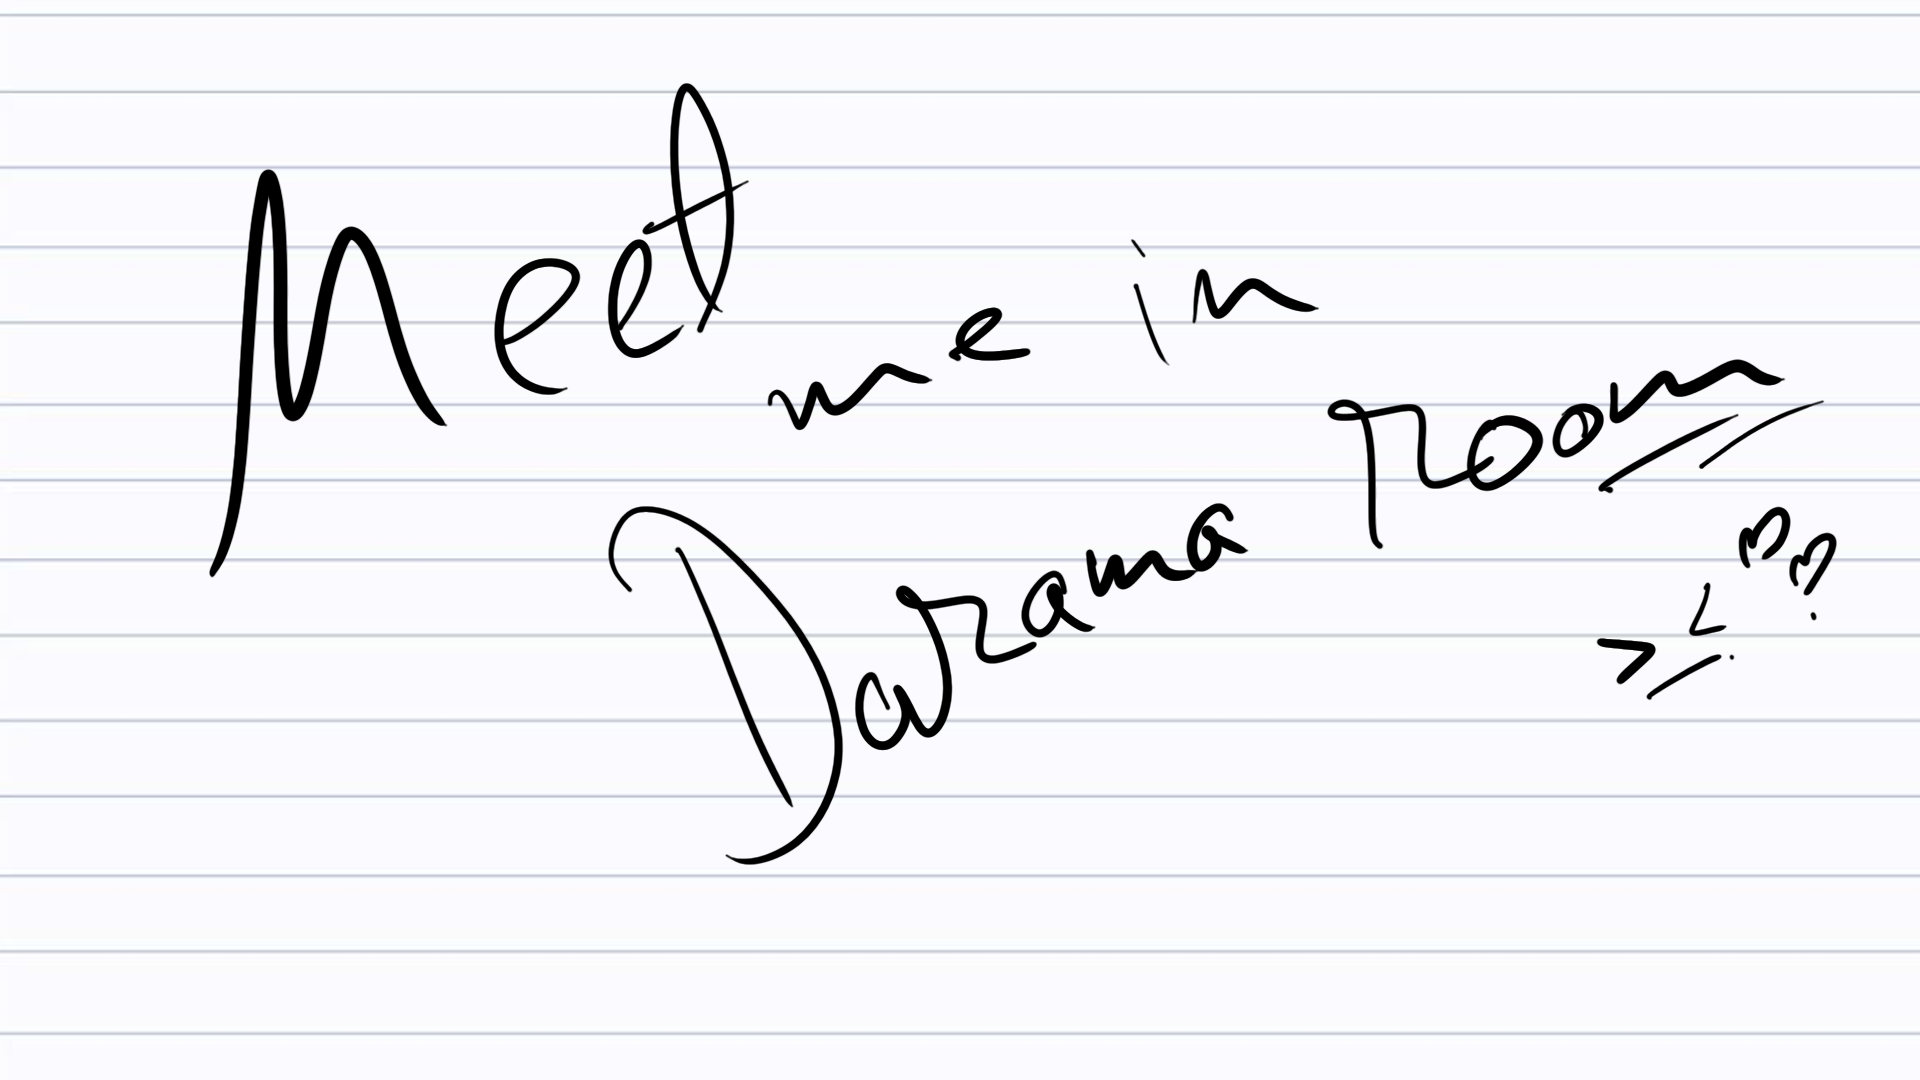 Meet me in
Darama room
>_< ??